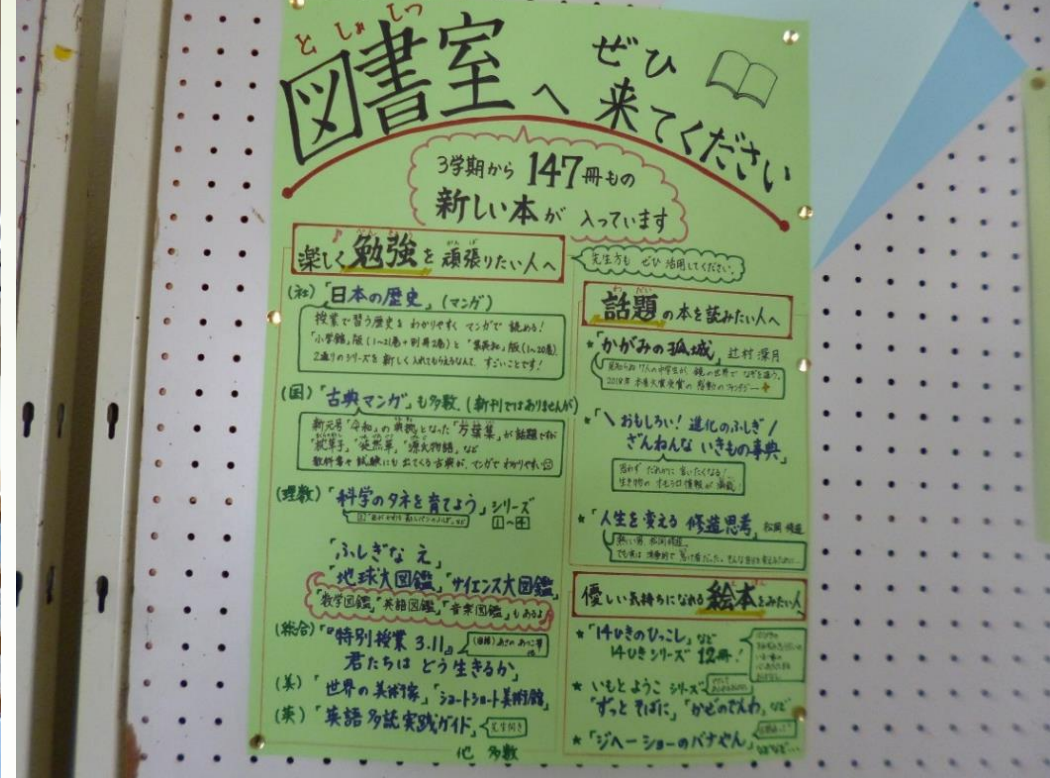 としょしつ
図書室へ ぜひ
来てください
3学期から 147冊もの
新しい本が 入っています
楽しく勉強を頑張りたい人へ
先生方も ぜひ 活用してください。
(社)「日本の歴史」(マンガ)
授業で習う歴史を わかりやすく マンガで 読める!
「小学館」版(1~21巻+別冊2巻)と「集英社」版(1~20巻)
2通りのシリーズを 新しく入れてもらえるなんて、すごいことです!
(国)「古典マンガ」も多数(新刊ではありませんが)
新元号「令和」の典拠となった「万葉集」が話題ですが
「枕草子」「徒然草」「源氏物語」など
教科書や試験にも出てくる古典が、マンガでわかりやすい
(理数)「科学のタネを育てよう」シリーズ
1~4
「ふしぎな え」
「地球大図鑑」「サイエンス大図鑑」
「数学図鑑」「英語図鑑」「音楽図鑑」もあるよ
(総合)「『特別授業 3.11』
君たちは どう生きるか」
(美)「世界の美術家」「ショートショート美術館」
(英)「英語多読実践ガイド」先生向き
他 多数
話題の本を読みたい人へ
★「かがみの孤城」辻村深月
7人の中学生が、鏡の世界で なぞを追う。
2018年 本屋大賞受賞の 感動のファンタジー
★「\おもしろい! 進化のふしぎ/
ざんねんな いきもの事典」
思わず だれかに 言いたくなる!
生き物の オモシロ情報が 満載!
★「人生を変える 修造思考」松岡 修造
熱い男 松岡修造。
優しい気持ちになれる絵本をみたい人
★「14ひきのひっこし」など
14ひきシリーズ 12冊!
★ いもとようこ シリーズ
「ずっと そばに」「かぜのでんわ」など
★「ジヘーショーのバナやん」などなど…